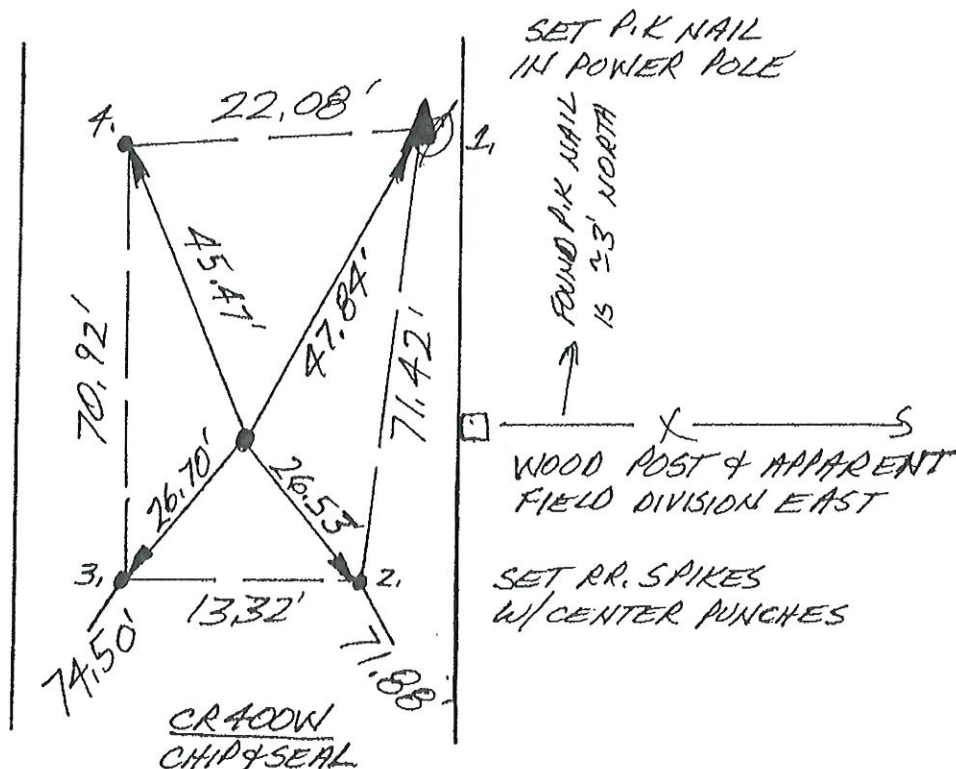 SET P.K NAIL
IN POWER POLE
4.
22.08'
1.
FOUND P.K NAIL
IS ≈3' NORTH
45.47'
47.84'
70.92'
71.42'
X
WOOD POST & APPARENT
FIELD DIVISION EAST
26.70'
26.53'
3.
13.32'
2.
SET RR. SPIKES
W/ CENTER PUNCHES
74.50'
71.88'
CR400W
CHIP & SEAL